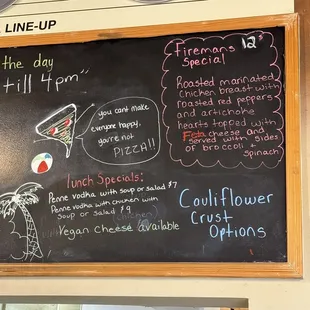 LINE-UP
the day
till 4pm"
you cant make
everyone happy,
you're not
PIZZA!!
Firemans 12
Special
Roasted marinated
chicken breast with
roasted red peppers
and artichoke
hearts topped with
Feta cheese and
served with sides
of broccoli +
spinach
lunch Specials:
Penne vodka with soup or salad $7
Penne vodka with chicken with
soup or salad $9
Vegan cheese available
Cauliflower
Crust
Options